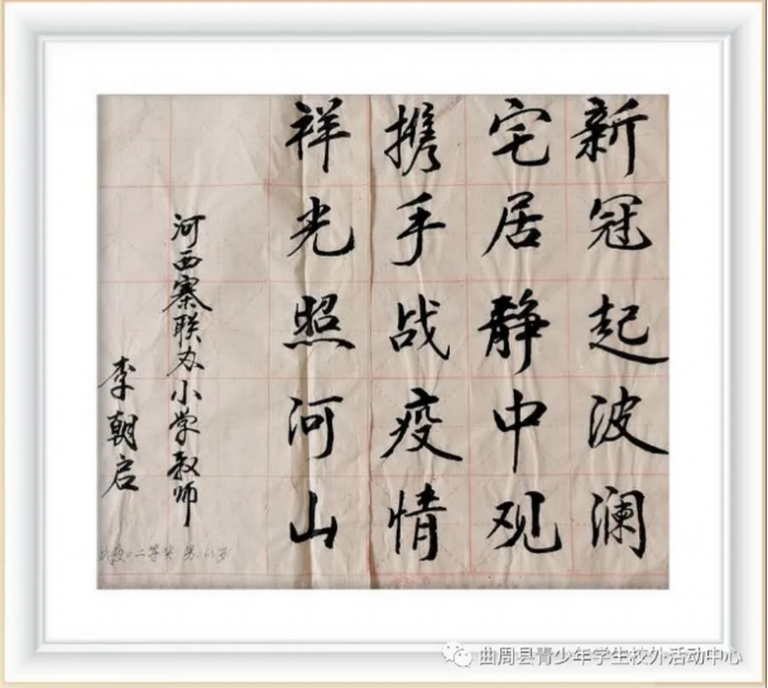 新冠起波澜
宅居静中观
携手战疫情
祥光照河山
河西寨联办小学教师
李朝启
曲周县青少年学生校外活动中心